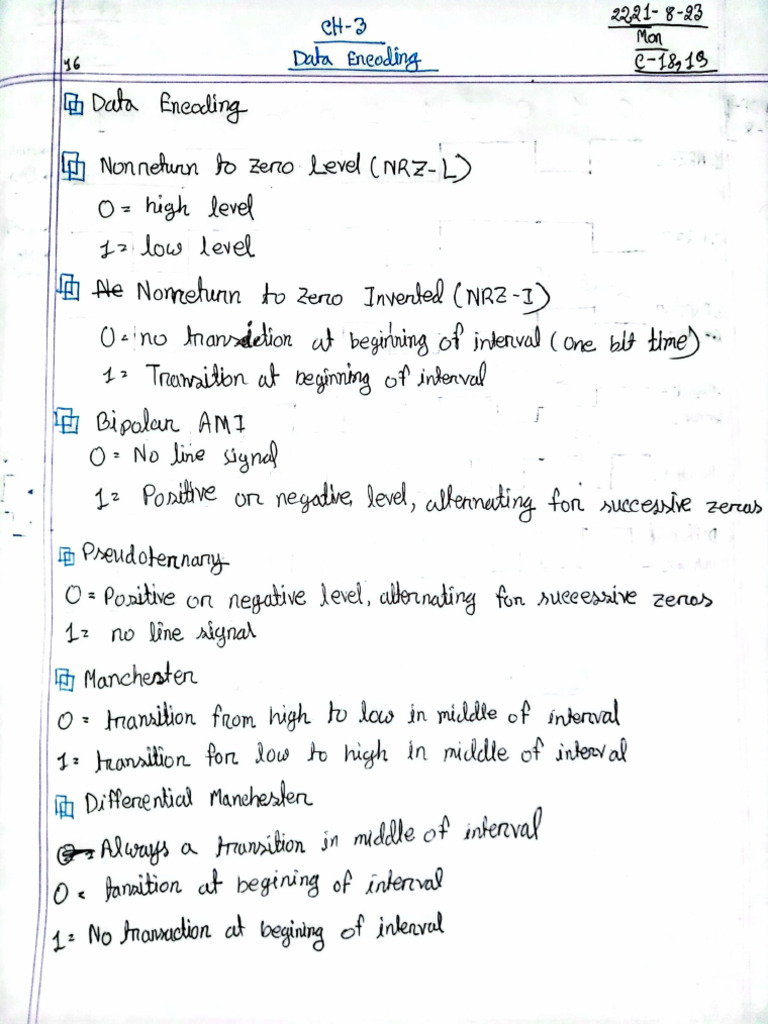 CH-3
Data Encoding
2221-8-23
Mon
C-18,19
16
Data Encoding
Nonreturn to zero Level (NRZ-L)
0 = high level
1 = low level
Nonreturn to zero Inverted (NRZ-I)
0 = no transiction at beginning of interval (one bit time)
1 = Transition at beginning of interval
Bipolar AMI
0 = No line signal
1 = Positive or negative level, alternating for successive zeros
Pseudoternary
0 = Positive or negative level, alternating for successive zeros
1 = no line signal
Manchester
0 = transition from high to low in middle of interval
1 = transition for low to high in middle of interval
Differential Manchester
Always a transition in middle of interval
0 = tansition at begining of interval
1 = No transaction at begining of interval